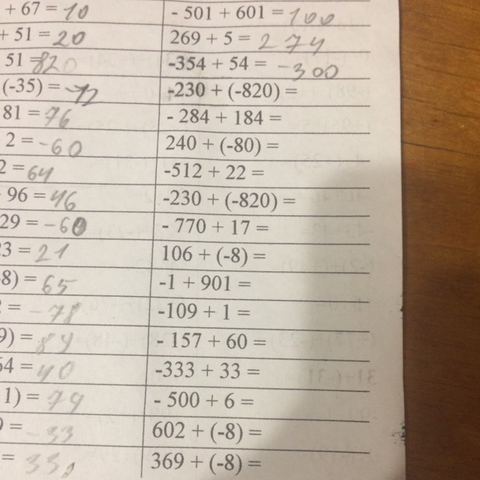 + 67 = 10 - 501 + 601 = 100
+ 51 = 20 269 + 5 = 274
51 = 820 -354 + 54 = -300
(-35) = -72 -230 + (-820) =
81 = 76 - 284 + 184 =
2 = -60 240 + (-80) =
2 = 64 -512 + 22 =
96 = 46 -230 + (-820) =
29 = -60 - 770 + 17 =
23 = 21 106 + (-8) =
8) = 65 -1 + 901 =
= -78 -109 + 1 =
9) = 84 - 157 + 60 =
64 = 40 -333 + 33 =
1) = 74 - 500 + 6 =
= -33 602 + (-8) =
= 33 369 + (-8) =